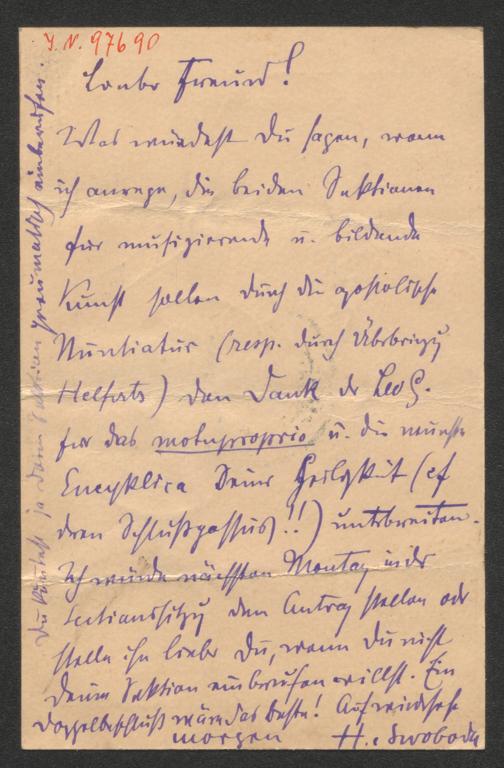 J. N. 97690
Lieber Freund!
Was würdest Du sagen, wenn
ich anrege, die beiden Sektionen
für musizierende u. bildende
Kunst sollen durch die apostolische
Nuntiatur (resp. durch
Helferts) den Dank der LeoG.
für das motuproprio u. die neueste
Encyklica Seiner Heiligkeit (cf
deren Schlußpassus!!) unterbreiten.
Ich würde nächsten Montag in der
Sectionssitzg den Antrag stellen oder
stelle ihn lieber Du, wenn Du nicht
Deine Sektion einberufen willst. Ein
Doppelbeschluß wäre das beste! Auf Wiedersehen
morgen H. Swoboda
Du könntest ja Deine Sektion einberufen.